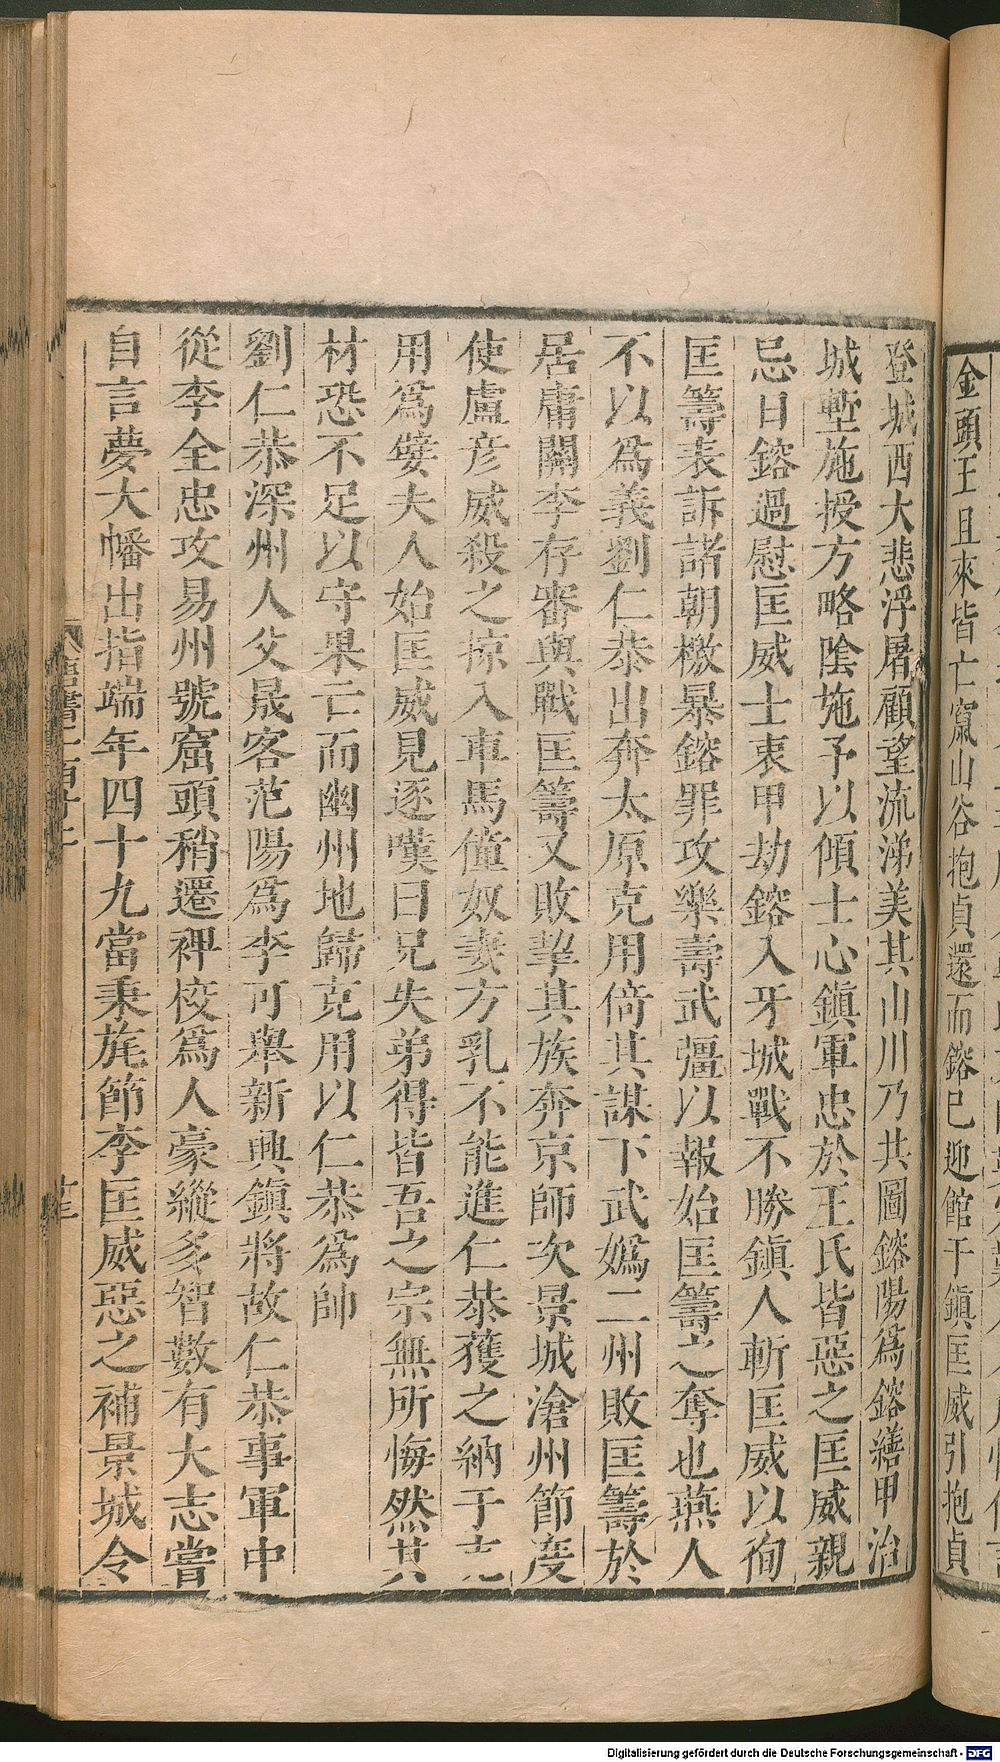 金頭王且來皆亡竄山谷抱貞還而鎔已迎館于鎮匡威引抱貞
登城西大悲浮屠顧望流涕美其山川乃共圖鎔陽爲鎔繕甲治
城塹施授方略陰施予以傾士心鎮軍忠於王氏皆惡之匡威親
忌日鎔過慰匡威士衷甲劫鎔入牙城戰不勝鎮人斬匡威以徇
匡籌表訴諸朝檄暴鎔罪攻樂壽武彊以報始匡籌之奪也燕人
不以爲義劉仁恭出奔太原克用倚其謀下武嬀二州敗匡籌於
居庸關李存審與戰匡籌又敗挈其族奔京師次景城滄州節度
使盧彦威殺之掠入車馬僮奴妻方乳不能進仁恭獲之納于克
用爲嬖夫人始匡威見逐嘆曰兄失弟得皆吾之宗無所悔然其
材恐不足以守果亡而幽州地歸克用以仁恭爲帥
劉仁恭深州人父晟客范陽爲李可舉新興鎮將故仁恭事軍中
從李全忠攻易州號窟頭稍遷裨校爲人豪縱多智數有大志嘗
自言夢大幡出指端年四十九當秉旄節李匡威惡之補景城令
Digitalisierung gefördert durch die Deutsche Forschungsgemeinschaft - DFG